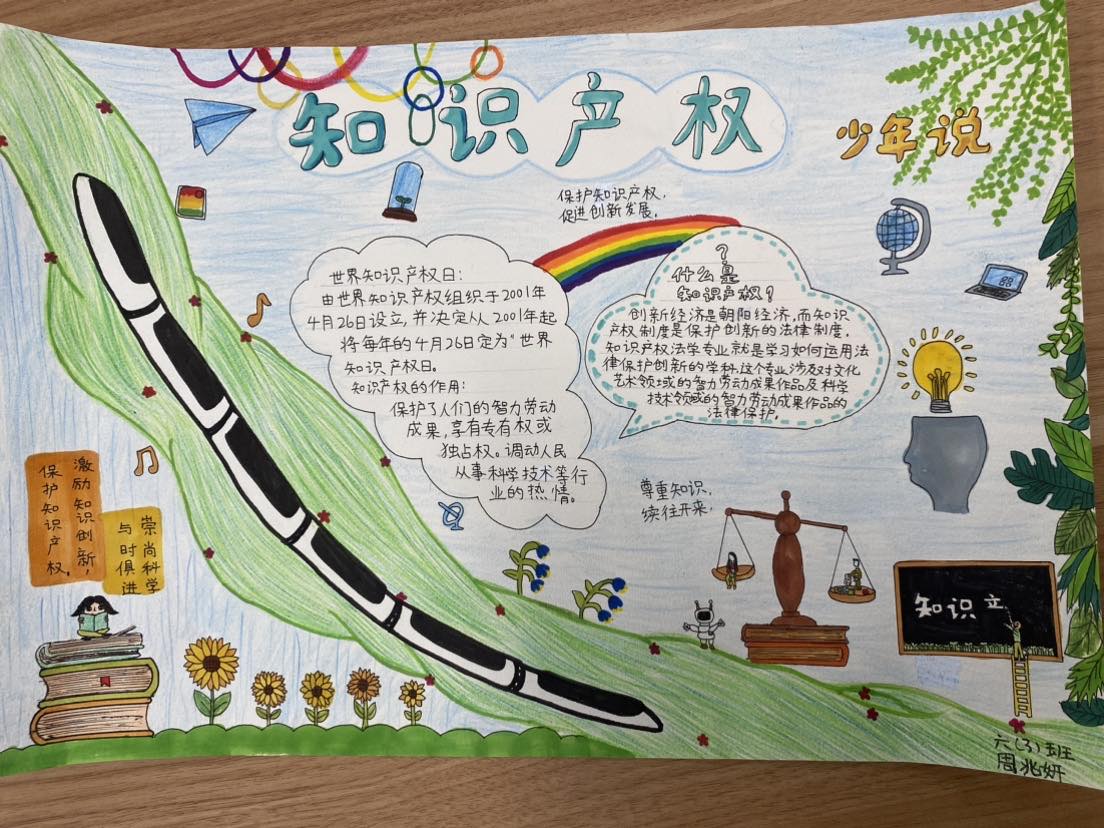 知识产权
少年说
保护知识产权,
促进创新发展.
世界知识产权日:
由世界知识产权组织于2001年
4月26日设立,并决定从2001年起
将每年的4月26日定为"世界
知识产权日。
知识产权的作用:
保护了人们的智力劳动
成果,享有专有权或
独占权。调动人民
从事科学技术等行
业的热情。
?
什么是
知识产权?
创新经济是朝阳经济,而知识
产权制度是保护创新的法律制度.
知识产权法学专业就是学习如何运用法
律保护创新的学科.这个专业涉及对文化
艺术领域的智力劳动成果作品及科学
技术领域的智力劳动成果作品的
法律保护.
尊重知识,
续往开来,
激励知识创新,
保护知识产权.
崇尚科学
与时俱进
知识产
六(3)班
周兆妍